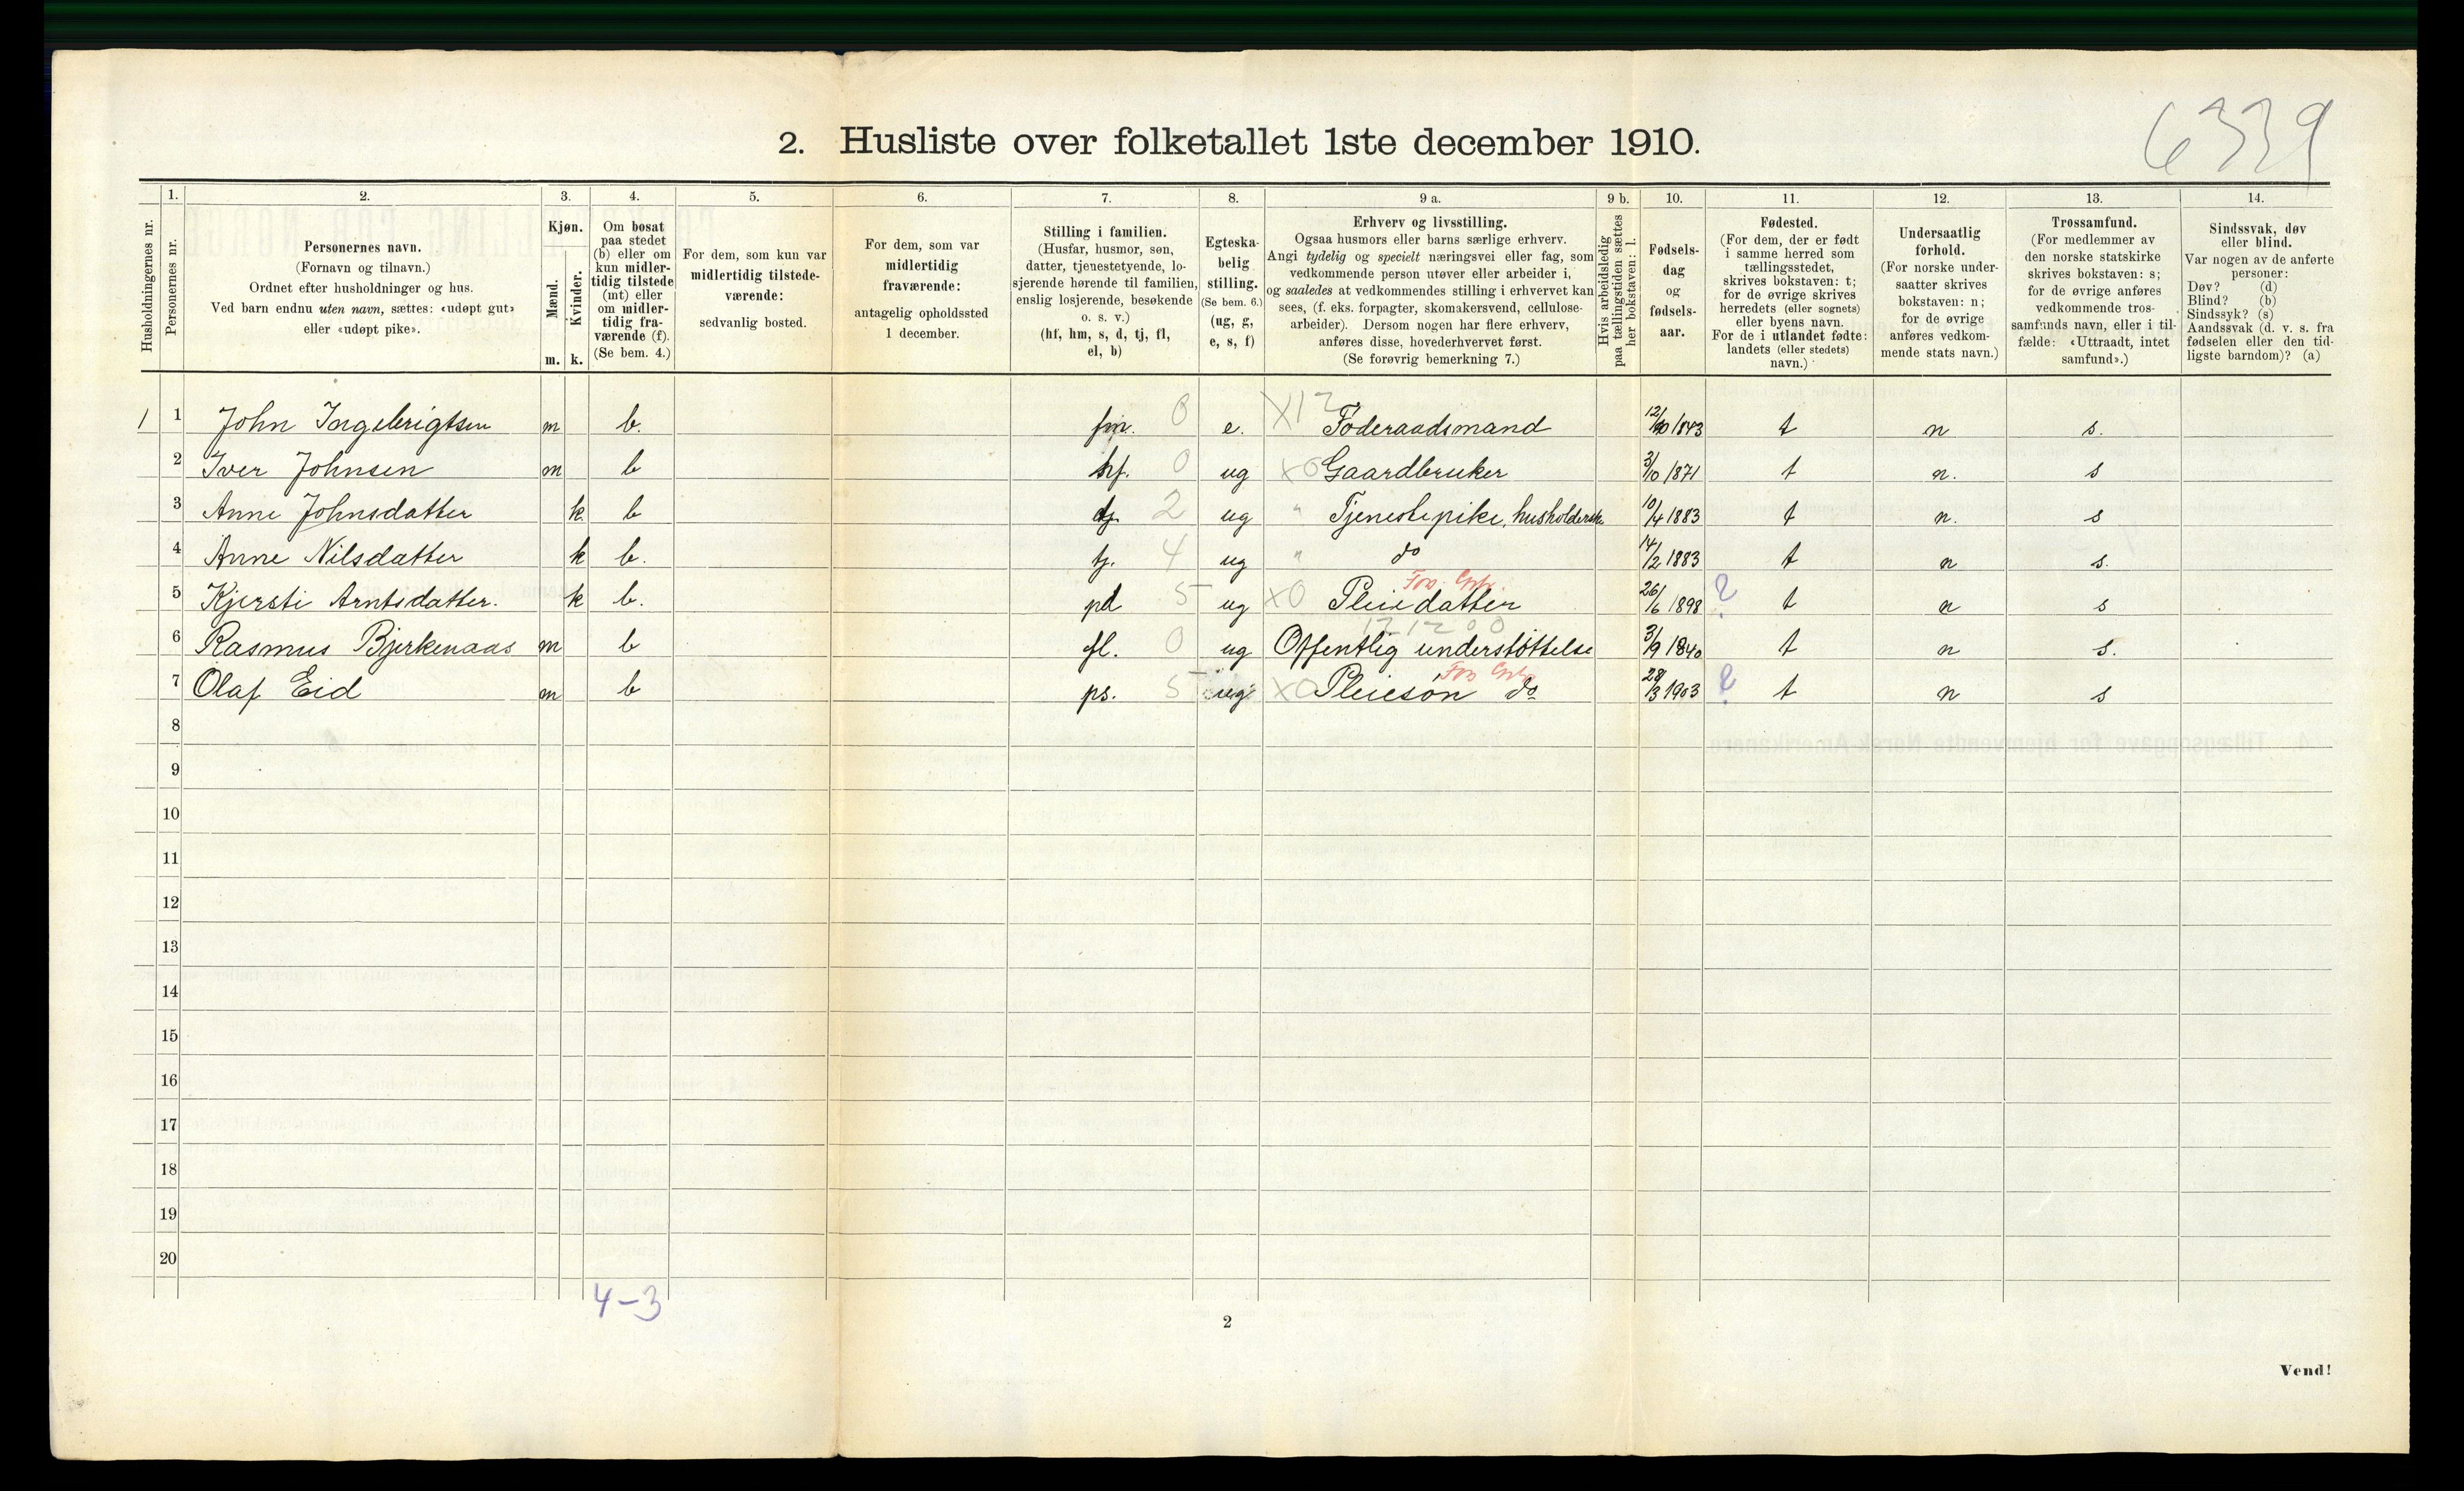 6339
2. Husliste over folketallet 1ste december 1910.
Husholdningernes nr.
1.
Personernes nr.
2.
Personernes navn.
(Fornavn og tilnavn.)
Ordnet efter husholdninger og hus.
Ved barn endnu uten navn, sættes: «udøpt gut»
eller «udøpt pike».
3.
Kjøn.
Mænd.
Kvinder.
m. k.
4.
Om bosat
paa stedet
(b) eller om
kun midler-
tidig tilstede
(mt) eller
om midler-
tidig fra-
værende (f).
(Se bem. 4.)
5.
For dem, som kun var
midlertidig tilstede-
værende:
sedvanlig bosted.
6.
For dem, som var
midlertidig
fraværende:
antagelig opholdssted
1 december.
7.
Stilling i familien.
(Husfar, husmor, søn,
datter, tjenestetyende, lo-
sjerende hørende til familien,
enslig losjerende, besøkende
o. s. v.)
(hf, hm, s, d, tj, fl,
el, b)
8.
Egteska-
belig
stilling.
(Se bem. 6.)
(ug, g,
e, s, f)
9 a.
Erhverv og livsstilling.
Ogsaa husmors eller barns særlige erhverv.
Angi tydelig og specielt næringsvei eller fag, som
vedkommende person utøver eller arbeider i,
og saaledes at vedkommendes stilling i erhvervet kan
sees, (f. eks. forpagter, skomakersvend, cellulose-
arbeider). Dersom nogen har flere erhverv,
anføres disse, hovederhvervet først.
(Se forøvrig bemerkning 7.)
9 b.
Hvis arbeidsledig
paa tællingstiden sættes
her bokstaven: l.
10.
Fødsels-
dag
og
fødsels-
aar.
11.
Fødested.
(For dem, der er født
i samme herred som
tællingsstedet,
skrives bokstaven: t;
for de øvrige skrives
herredets (eller sognets)
eller byens navn.
For de i utlandet fødte:
landets (eller stedets)
navn.)
12.
Undersaatlig
forhold.
(For norske under-
saatter skrives
bokstaven: n;
for de øvrige
anføres vedkom-
mende stats navn.)
13.
Trossamfund.
(For medlemmer av
den norske statskirke
skrives bokstaven: s;
for de øvrige anføres
vedkommende tros-
samfunds navn, eller i til-
fælde: «Uttraadt, intet
samfund».)
14.
Sindssvak, døv
eller blind.
Var nogen av de anførte
personer:
Døv? (d)
Blind? (b)
Sindssyk? (s)
Aandssvak (d. v. s. fra
fødselen eller den tid-
ligste barndom)? (a)
1 1 John Ingebrigtsen m b. fm. 0 e. X12 Føderaadsmand 1843 t n s.
2 Iver Johnsen m b hf. 0 ug X0 Gaardbruker 3/10 1871 t n. s
3 Anne Johnsdatter k b tj. 2 ug " Tjenestepike, husholderske 10/4 1883 t n. s
4 Anne Nilsdatter k b. tj. 4 ug " do 14/2 1883 t n s.
5 Kjersti Arntsdatter. k b. pd 5 ug X0 Pleiedatter 26/6 1898 ? t n s
6 Rasmus Bjerkenaas m b fl. 0 ug Offentlig understøttelse 3/9 1840 t n s.
7 Olaf Eid m b ps. 5 ug X0 Pleiesøn do 28/3 1903 ? t n s
8
9
10
11
12
13
14
15
16
17
18
19
20
4-3
2
Vend!